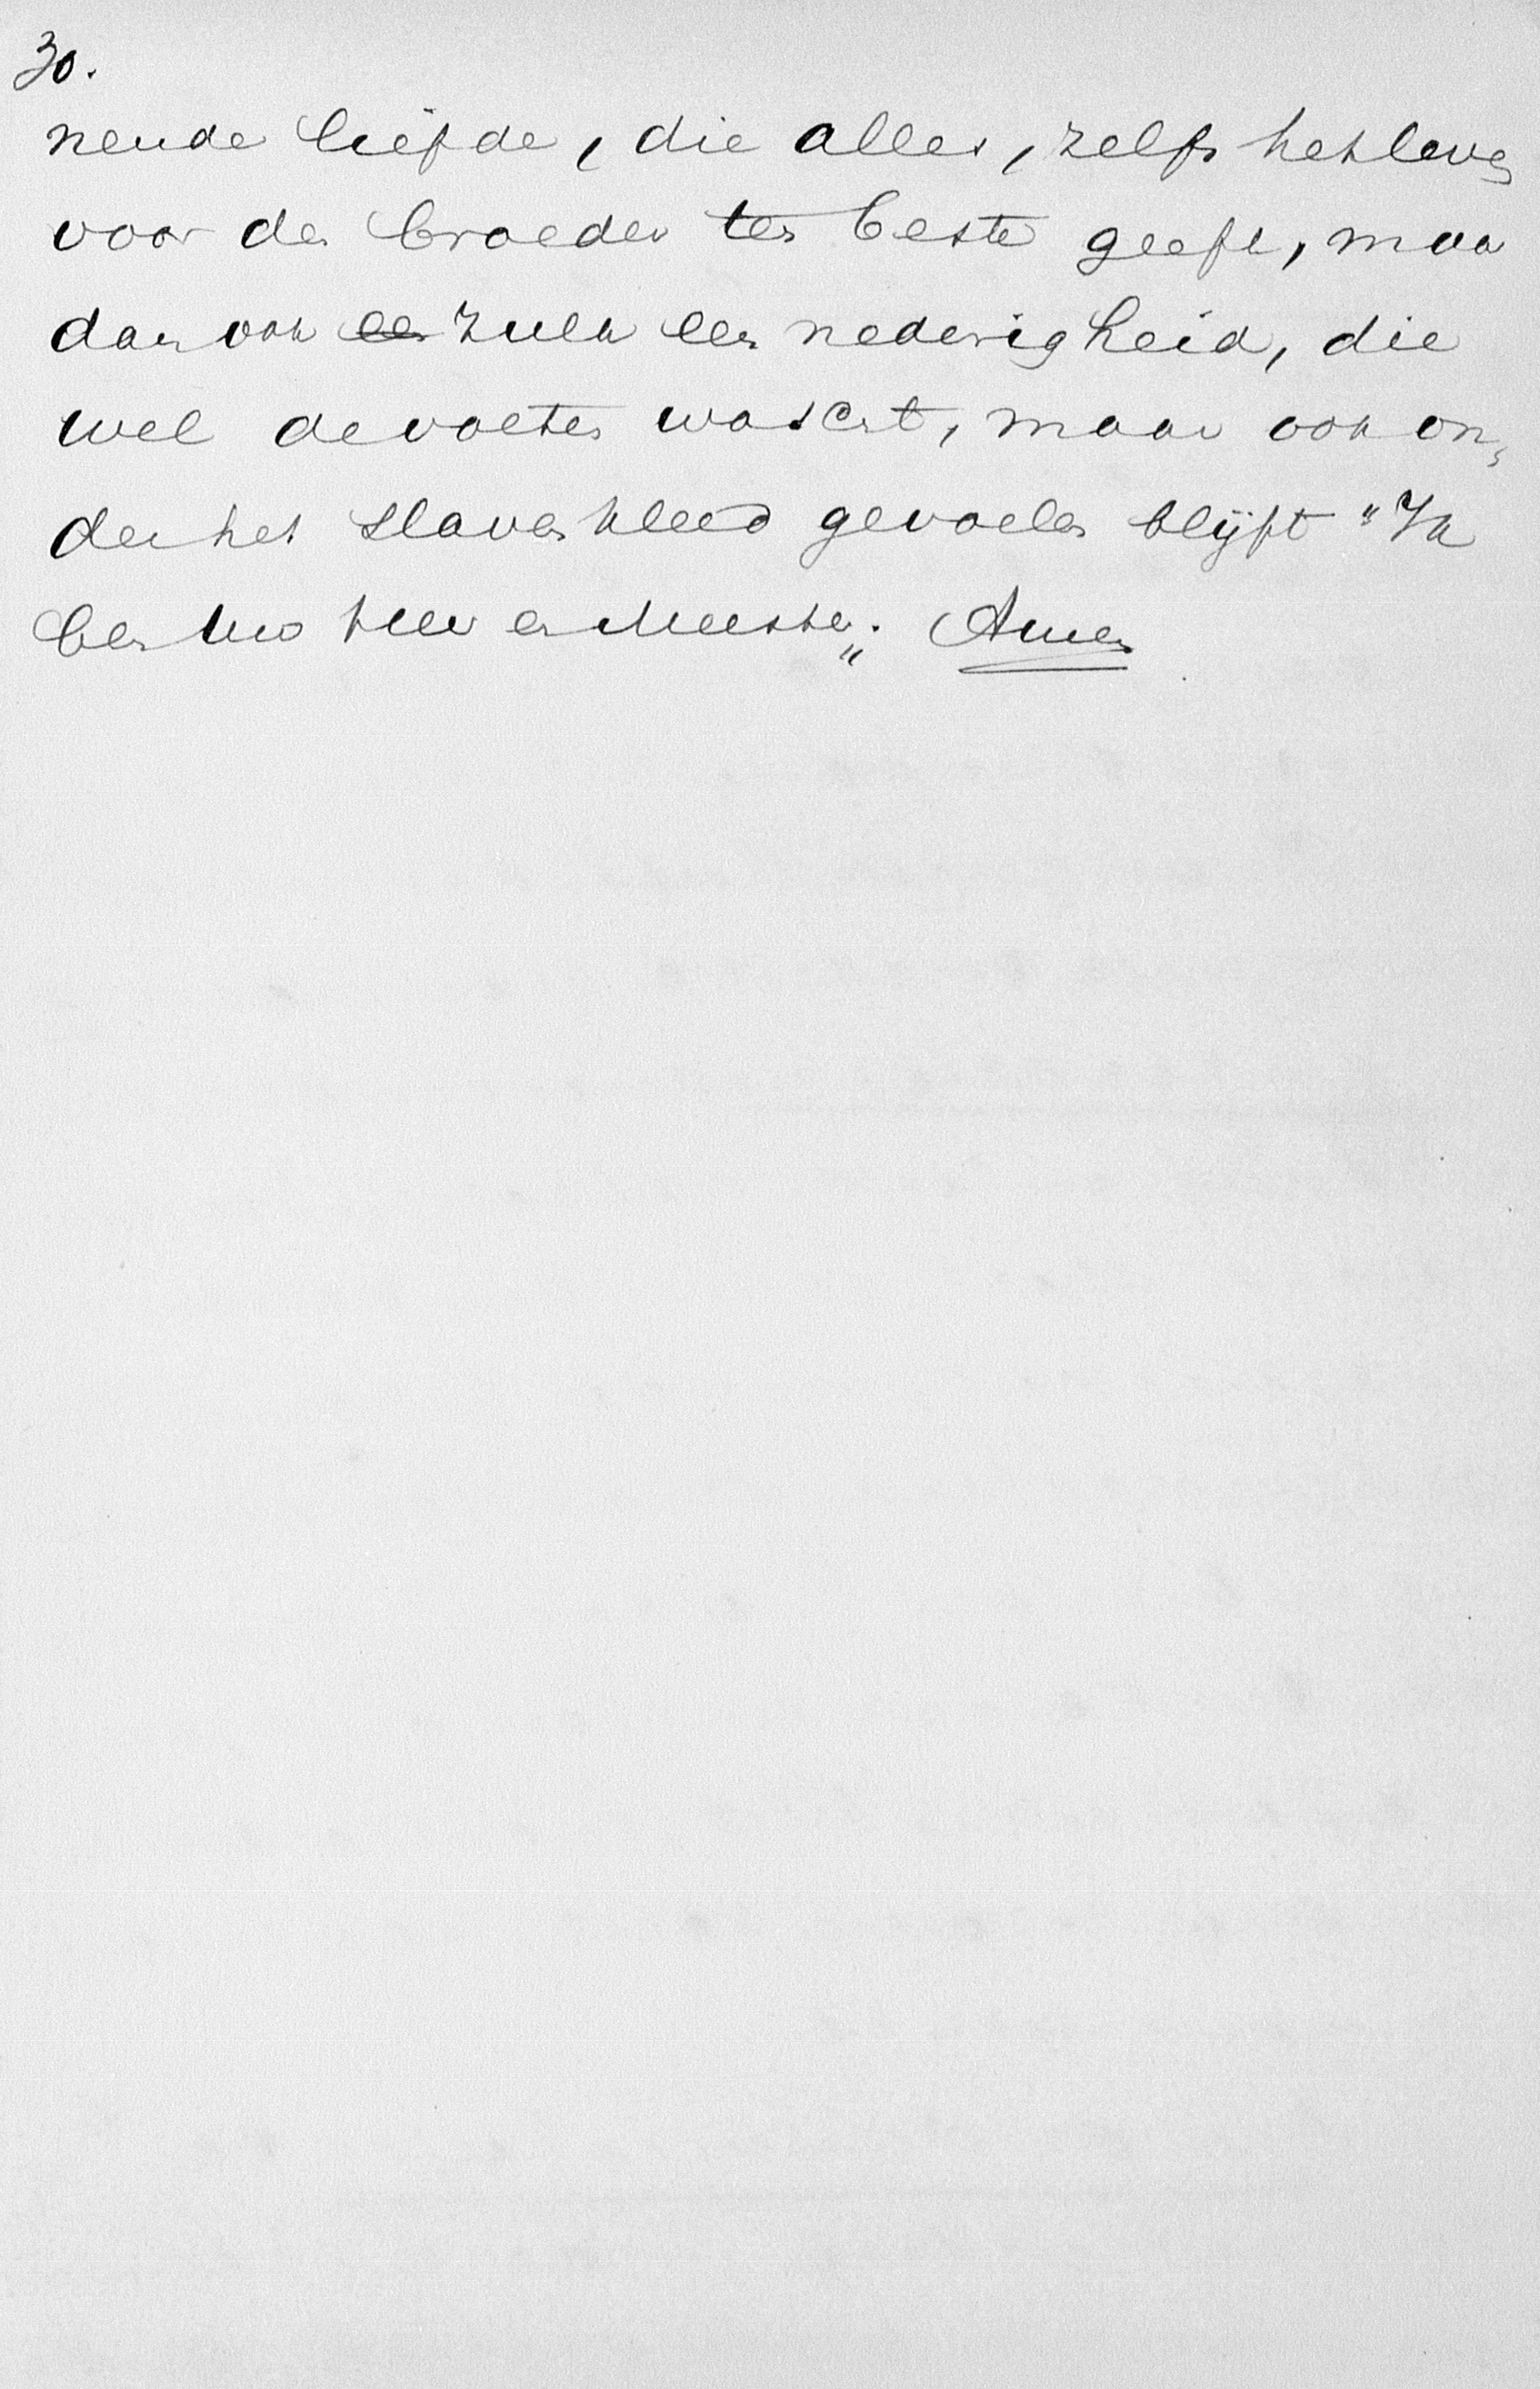 30.
nende liefde, die alles, zelfs het leven
voor den broeder ten beste geeft, maar
dan ook een zulk een nederigheid, die
wel de voeten wascht, maar ook on„
der het slavenkleed gevoelen blijft "Ik
ben Uw Heer en Meester„. Amen